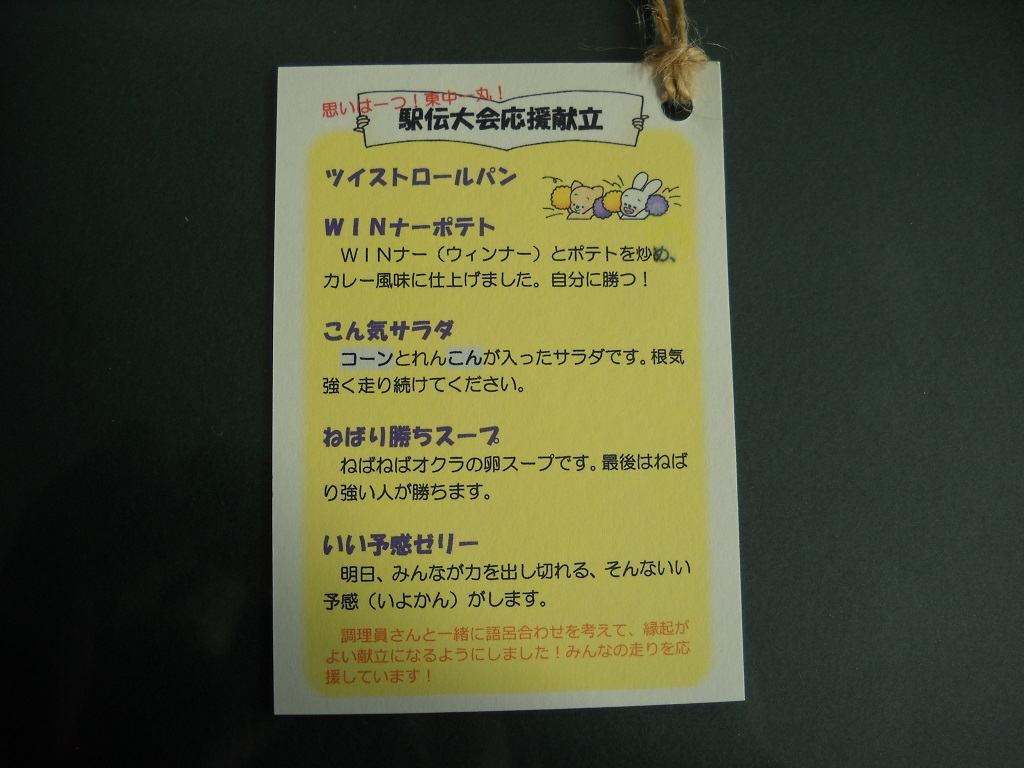 思いは一つ！東中一丸！
駅伝大会応援献立
ツイストロールパン
ＷＩＮナーポテト
ＷＩＮナー（ウィンナー）とポテトを炒め、
カレー風味に仕上げました。自分に勝つ！
こん気サラダ
コーンとれんこんが入ったサラダです。根気
強く走り続けてください。
ねばり勝ちスープ
ねばねばオクラの卵スープです。最後はねば
り強い人が勝ちます。
いい予感ゼリー
明日、みんなが力を出し切れる、そんないい
予感（いよかん）がします。
調理員さんと一緒に語呂合わせを考えて、縁起が
よい献立になるようにしました！みんなの走りを応
援しています！